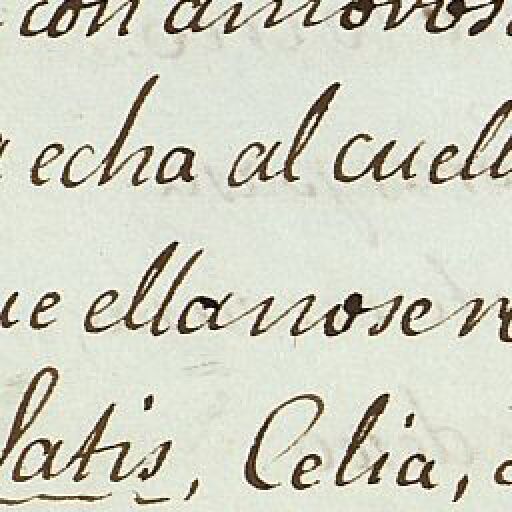 con amoros
echa al cuell
ue ella no se re
Satis, Celia,